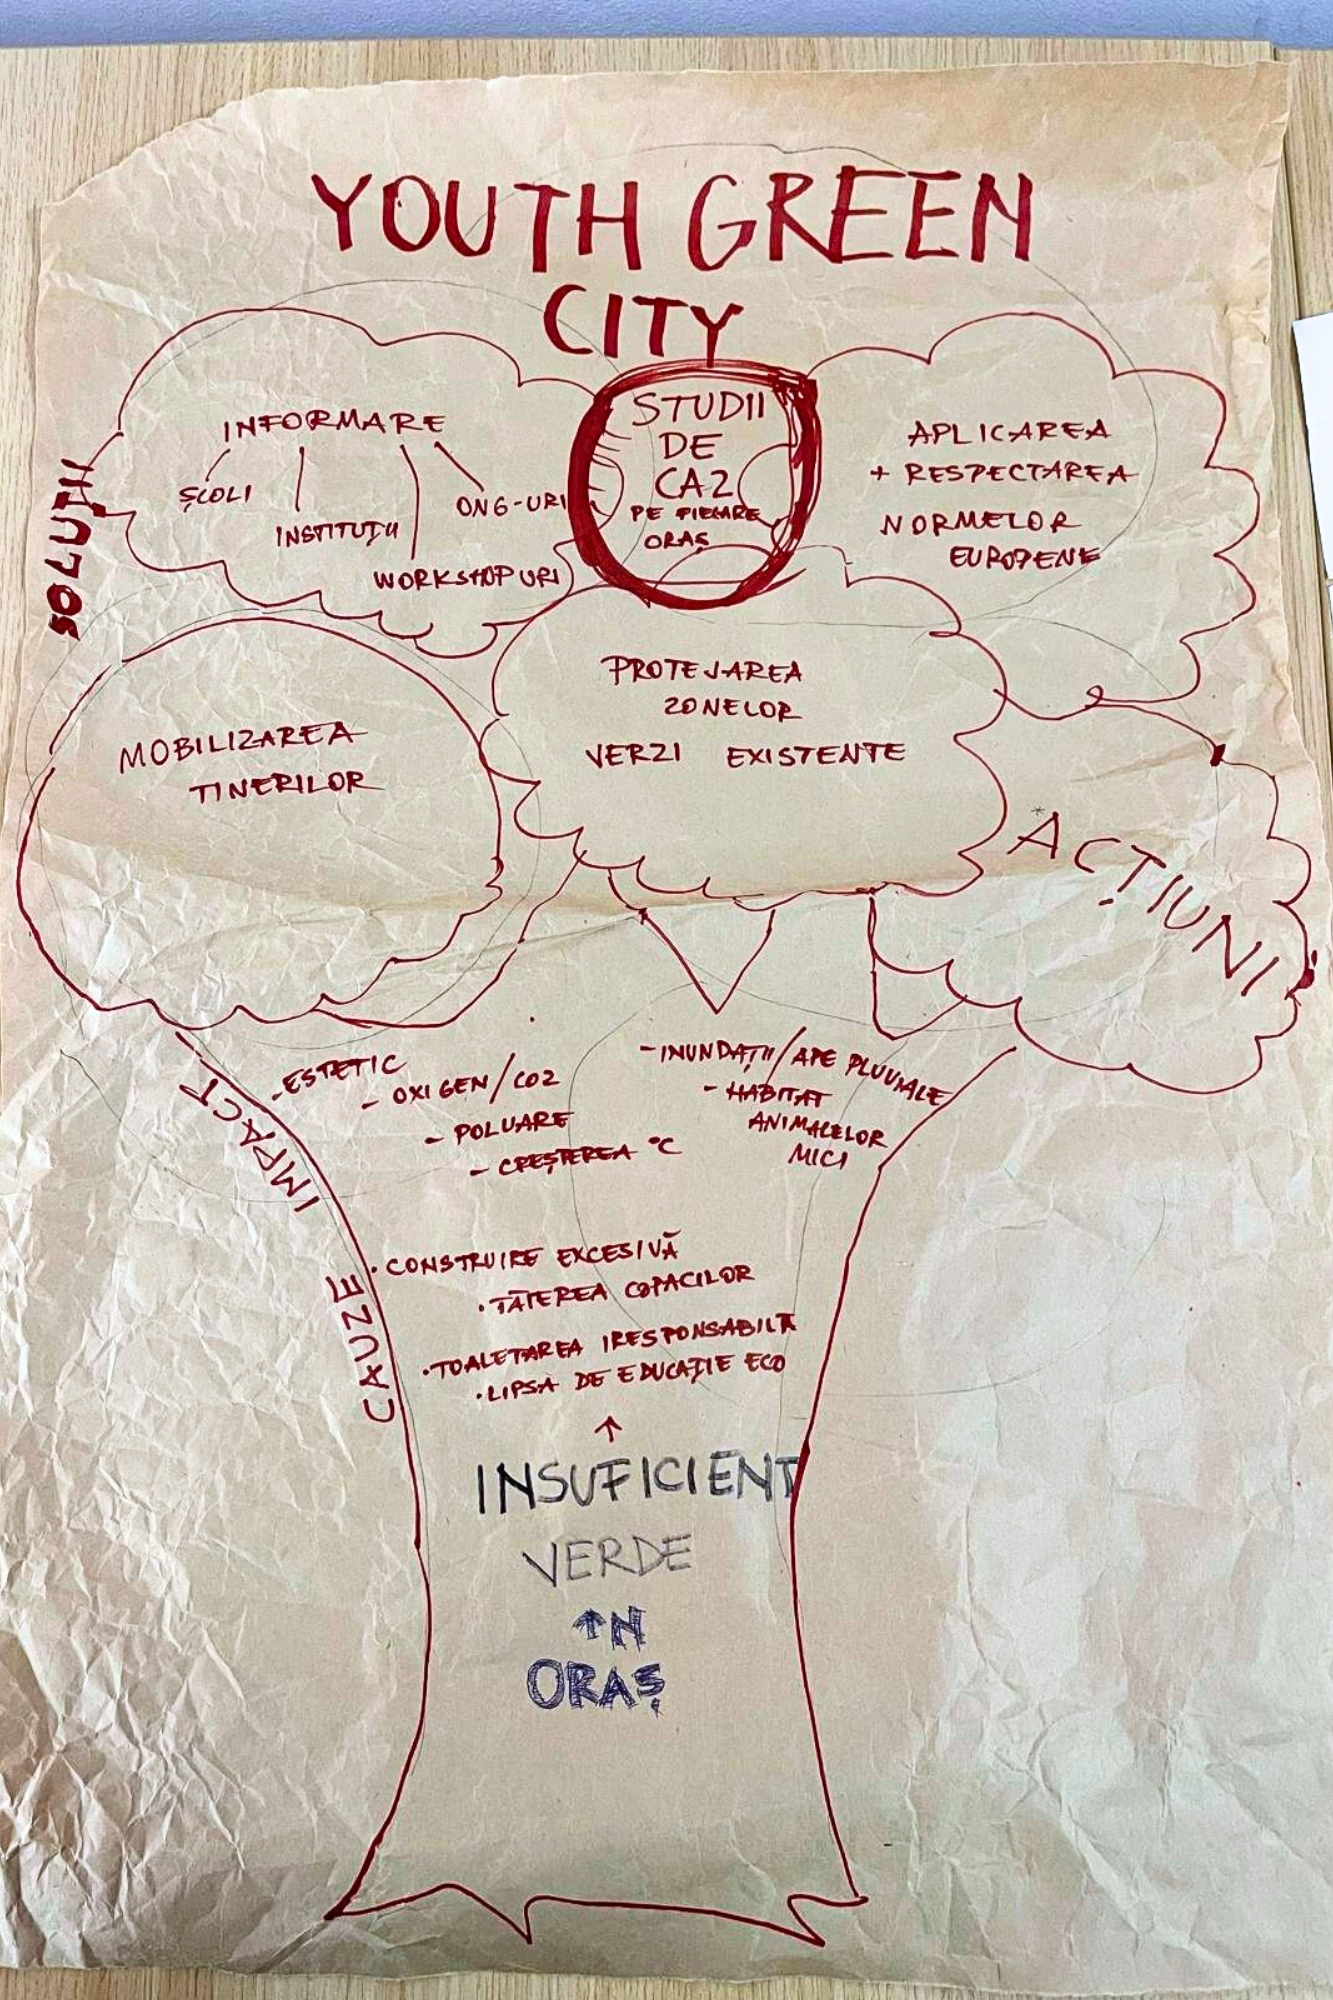 YOUTH GREEN
CITY
SOLUȚII
INFORMARE
ȘCOLI
INSTITUȚII
WORKSHOPURI
ONG-URI
STUDII
DE
CAZ
PE FIECARE
ORAȘ
APLICAREA
+ RESPECTAREA
NORMELOR
EUROPENE
MOBILIZAREA
TINERILOR
PROTEJAREA
ZONELOR
VERZI EXISTENTE
*ACȚIUNI
IMPACT
-ESTETIC
- OXIGEN/CO2
- POLUARE
- CREȘTEREA °C
-INUNDAȚII/APE PLUVIALE
- HABITAT
ANIMALELOR
MICI
CAUZE
•CONSTRUIRE EXCESIVĂ
•TĂIEREA COPACILOR
•TOALETAREA IRESPONSABILĂ
•LIPSA DE EDUCAȚIE ECO
↑
INSUFICIENT
VERDE
ÎN
ORAȘ